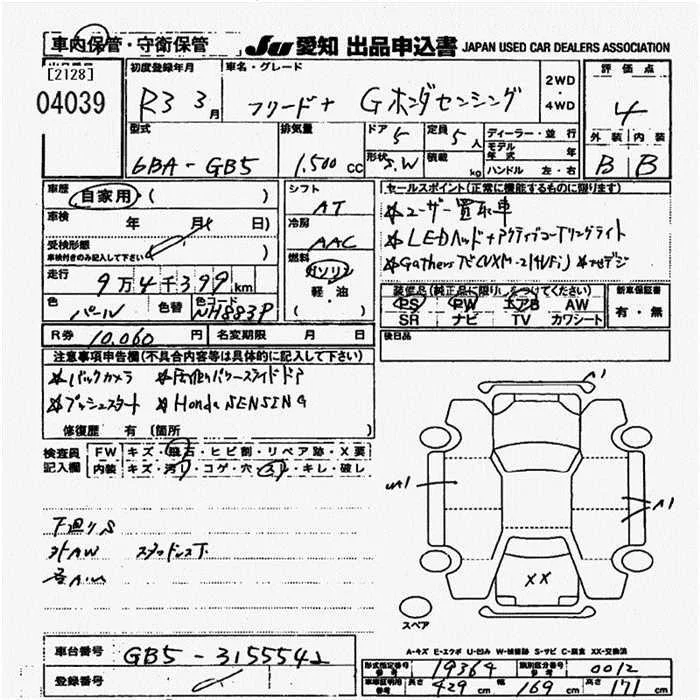 車内保管・守衛保管 Ju 愛知 出品申込書 JAPAN USED CAR DEALERS ASSOCIATION
[2128]
04039
初度登録年月
R3 3月
車名・グレード
フリード+ Gホンダセンシング
2WD
・
4WD
評価点
4
外装 内装
B B
型式
6BA-GB5
排気量
1.500 CC
ドア 5
形状 S.W
定員 5人
積載 kg
ディーラー・並行
モデル年式 年
ハンドル 左・右
車歴
自家用・( )
車検 年 月( 日)
受検形態
車検付きのみ記入して下さい
走行
9万4千399km
色
パール
色替
色コード
NH883P
シフト
AT
冷房
AAC
燃料
ガソリン
軽・油
( )
セールスポイント(正常に機能するものに限ります)
☆ユーザー買取車
☆LEDヘッド+アクティブコーナリングライト
☆Gathersナビ(VXM-214VFi) ☆ナビデジ
装備品(純正品に限り、○をつけてください)
PS PW エアB AW
SR ナビ TV カワシート
新車保証書
有・無
R券 10,060円
名変期限 月 日
後日品
注意事項申告欄(不具合内容等は具体的に記入して下さい)
☆バックカメラ ☆両側パワースライドドア
☆プッシュスタート ☆Honda SENSING
修復歴 有(箇所 )
検査員記入欄
FW キズ・飛石・ヒビ割・リペア跡・X要
内装 キズ・汚れ・コゲ・穴・スレ・キレ・破し
下廻りS
外AW スタッドレス
A1
A1
XX
スペア
A-キズ E-エクボ U-凹み W-補修跡 S-サビ C-腐食 XX-交換済
車台番号 GB5-3155542
登録番号
形式指定番号 参考 19364
類別区分番号 参考 0012
車車証明用 参考 長さ 429 cm 幅 169 cm 高さ 171 cm